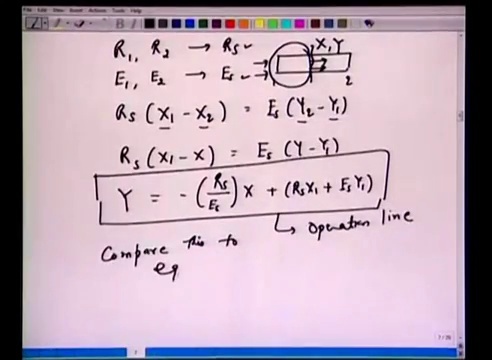 Edit View Insert Actions Tools Help
R₁, R₂ → Rs ✓
X, Y
E₁, E₂ → Es ✓
1 2
Rs (X₁ - X₂) = Es (Y₂ - Y₁)
Rs (X₁ - X) = Es (Y - Y₁)
Y = - (Rs/Es) X + (Rs X₁ + Es Y₁)
↳ Operation line
Compare this to
eq